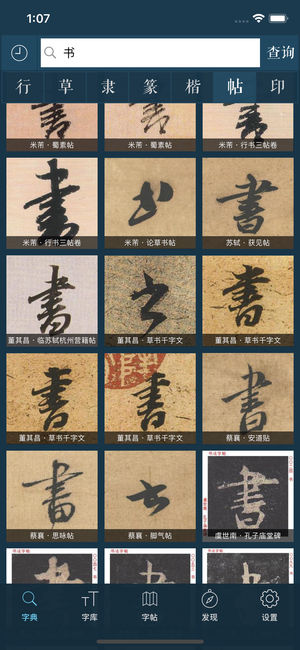 1:07
书 查询
行 草 隶 篆 楷 帖 印
米芾·蜀素帖 米芾·蜀素帖 米芾·行书三帖卷
書 書 書
米芾·行书三帖卷 米芾·论草书帖 苏轼·获见帖
書 书 書
董其昌·临苏轼杭州营籍帖 董其昌·草书千字文 董其昌·草书千字文
書 书 書
董其昌·草书千字文 董其昌·草书千字文 蔡襄·安道贴
書 書 書
蔡襄·思咏帖 蔡襄·脚气帖 虞世南·孔子庙堂碑
書 书 書
字典 字库 字帖 发现 设置